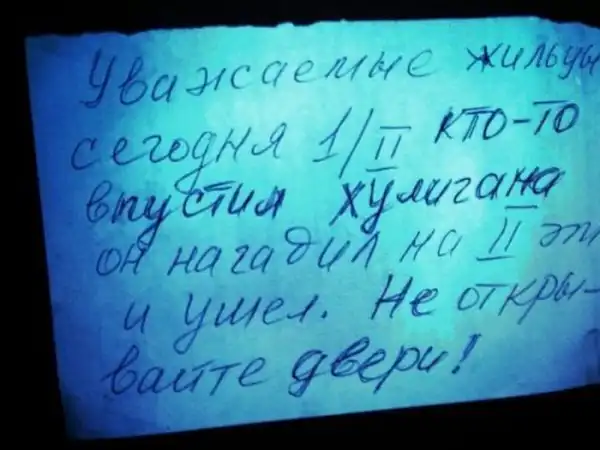 Уважаемые жильцы
сегодня 1/II кто-то
впустил хулигана
он нагадил на II эт
и ушел. Не откры-
вайте двери!